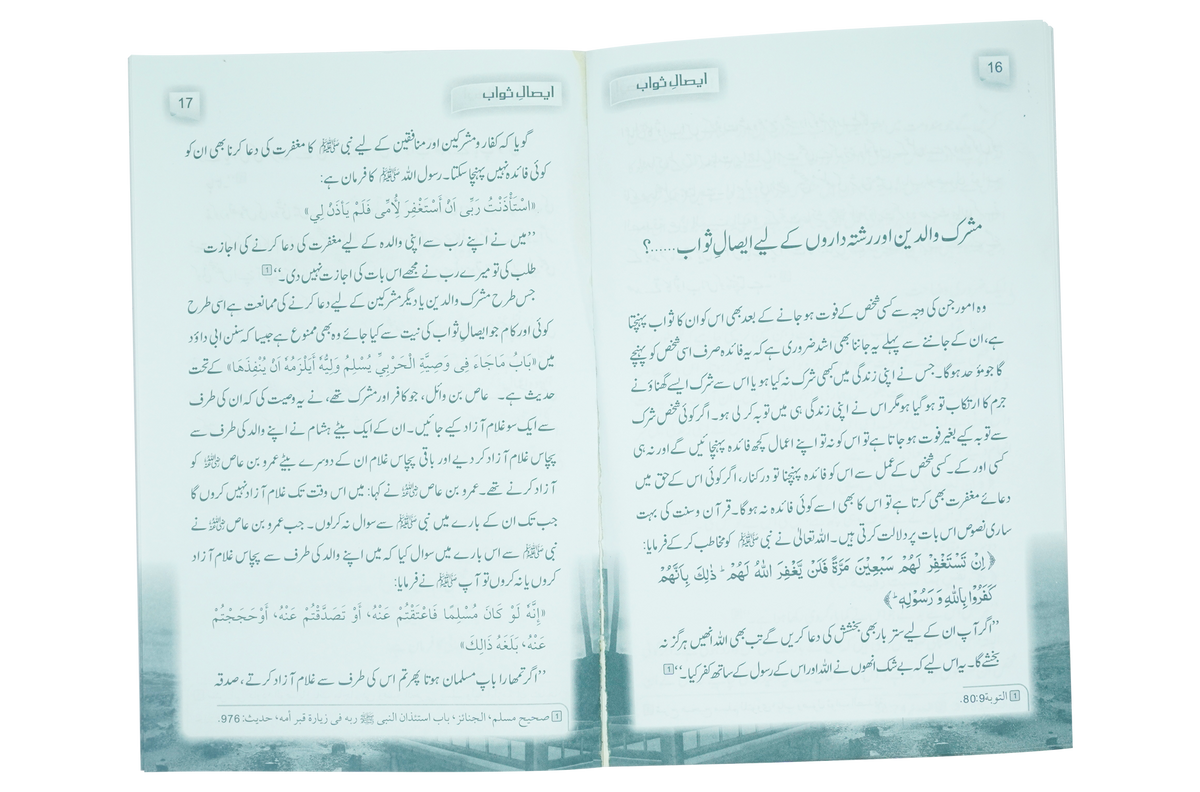 16
ایصالِ ثواب
مشرک والدین اور رشتہ داروں کے لیے ایصالِ ثواب......؟
وہ امور جن کی وجہ سے کسی شخص کے فوت ہو جانے کے بعد بھی اس کو ان کا ثواب پہنچتا
ہے، ان کے جاننے سے پہلے یہ جاننا بھی اشد ضروری ہے کہ یہ فائدہ صرف اسی شخص کو پہنچے
گا جو مؤحد ہوگا۔ جس نے اپنی زندگی میں کبھی شرک نہ کیا ہو یا اس سے شرک ایسے گھناؤنے
جرم کا ارتکاب تو ہو گیا ہو مگر اس نے اپنی زندگی ہی میں توبہ کر لی ہو۔ اگر کوئی شخص شرک
سے توبہ کیے بغیر فوت ہو جاتا ہے تو اس کو نہ تو اپنے اعمال کچھ فائدہ پہنچائیں گے اور نہ ہی
کسی اور کے۔ کسی شخص کے عمل سے اس کو فائدہ پہنچنا تو درکنار، اگر کوئی اس کے حق میں
دعائے مغفرت بھی کرتا ہے تو اس کا بھی اسے کوئی فائدہ نہ ہوگا۔ قرآن و سنت کی بہت
ساری نصوص اس بات پر دلالت کرتی ہیں۔ اللہ تعالیٰ نے نبی ﷺ کو مخاطب کر کے فرمایا:
﴿اِنْ تَسْتَغْفِرْ لَهُمْ سَبْعِيْنَ مَرَّةً فَلَنْ يَّغْفِرَ اللّٰهُ لَهُمْ ؕ ذٰلِكَ بِاَنَّهُمْ
كَفَرُوْا بِاللّٰهِ وَ رَسُوْلِهٖ ؕ﴾
’’اگر آپ ان کے لیے ستر بار بھی بخشش کی دعا کریں گے تب بھی اللہ انھیں ہرگز نہ
بخشے گا۔ یہ اس لیے کہ بے شک انھوں نے اللہ اور اس کے رسول کے ساتھ کفر کیا۔‘‘ 1
1 التوبة 80:9.
17
ایصالِ ثواب
گویا کہ کفار و مشرکین اور منافقین کے لیے نبی ﷺ کا مغفرت کی دعا کرنا بھی ان کو
کوئی فائدہ نہیں پہنچا سکتا۔ رسول اللہ ﷺ کا فرمان ہے:
«اسْتَأْذَنْتُ رَبِّى اَنْ أَسْتَغْفِرَ لِأُمِّى فَلَمْ يَاْذَنْ لِي»
’’میں نے اپنے رب سے اپنی والدہ کے لیے مغفرت کی دعا کرنے کی اجازت
طلب کی تو میرے رب نے مجھے اس بات کی اجازت نہیں دی۔‘‘ 1
جس طرح مشرک والدین یا دیگر مشرکین کے لیے دعا کرنے کی ممانعت ہے اسی طرح
کوئی اور کام جو ایصالِ ثواب کی نیت سے کیا جائے وہ بھی ممنوع ہے جیسا کہ سنن ابی داؤد
میں «بَابُ مَاجَاءَ فِى وَصِيَّةِ الْحَرْبِيِّ يُسْلِمُ وَلِيُّهُ أَيَلْزَمُهُ اَنْ يُنْفِذَهَا» کے تحت
حدیث ہے۔ عاص بن وائل، جو کافر اور مشرک تھے، نے یہ وصیت کی کہ ان کی طرف
سے ایک سو غلام آزاد کیے جائیں۔ ان کے ایک بیٹے ہشام نے اپنے والد کی طرف سے
پچاس غلام آزاد کر دیے اور باقی پچاس غلام ان کے دوسرے بیٹے عمرو بن عاص رضی اللہ عنہ کو
آزاد کرنے تھے۔ عمرو بن عاص رضی اللہ عنہ نے کہا: میں اس وقت تک غلام آزاد نہیں کروں گا
جب تک ان کے بارے میں نبی ﷺ سے سوال نہ کرلوں۔ جب عمرو بن عاص رضی اللہ عنہ نے
نبی ﷺ سے اس بارے میں سوال کیا کہ میں اپنے والد کی طرف سے پچاس غلام آزاد
کروں یا نہ کروں تو آپ ﷺ نے فرمایا:
«إِنَّهُ لَوْ كَانَ مُسْلِمًا فَاعْتَقْتُمْ عَنْهُ، أَوْ تَصَدَّقْتُمْ عَنْهُ، أَوْحَجَجْتُمْ
عَنْهُ، بَلَغَهُ ذَالِكَ»
’’اگر تمھارا باپ مسلمان ہوتا پھر تم اس کی طرف سے غلام آزاد کرتے، صدقہ
1 صحيح مسلم، الجنائز، باب استئذان النبى ﷺ ربه فى زيارة قبر أمه، حديث: 976.